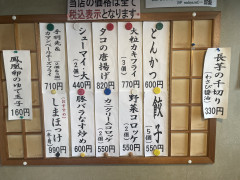 当店の価格は
税込表示となります。
とんかつ 600円
餃子（5個）550円
大粒カキフライ（3個）770円
野菜コロッケ（2個）550円
タコの唐揚げ 820円
カニクリームコロッケ
シューマイ（3個）440円
豚バラなんこつ炒め 600円
710円
しまほっけ 990円
鳳凰卵のゆで玉子 160円
長芋の千切り（わさび醤油）330円